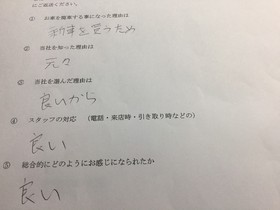 にご返送ください。
① お車を廃車する事になった理由は
新車を買うため
② 当社を知った理由は
元々
③ 当社を選んだ理由は
良いから
④ スタッフの対応 (電話・来店時・引き取り時などの)
良い
⑤ 総合的にどのようにお感じになられたか
良い